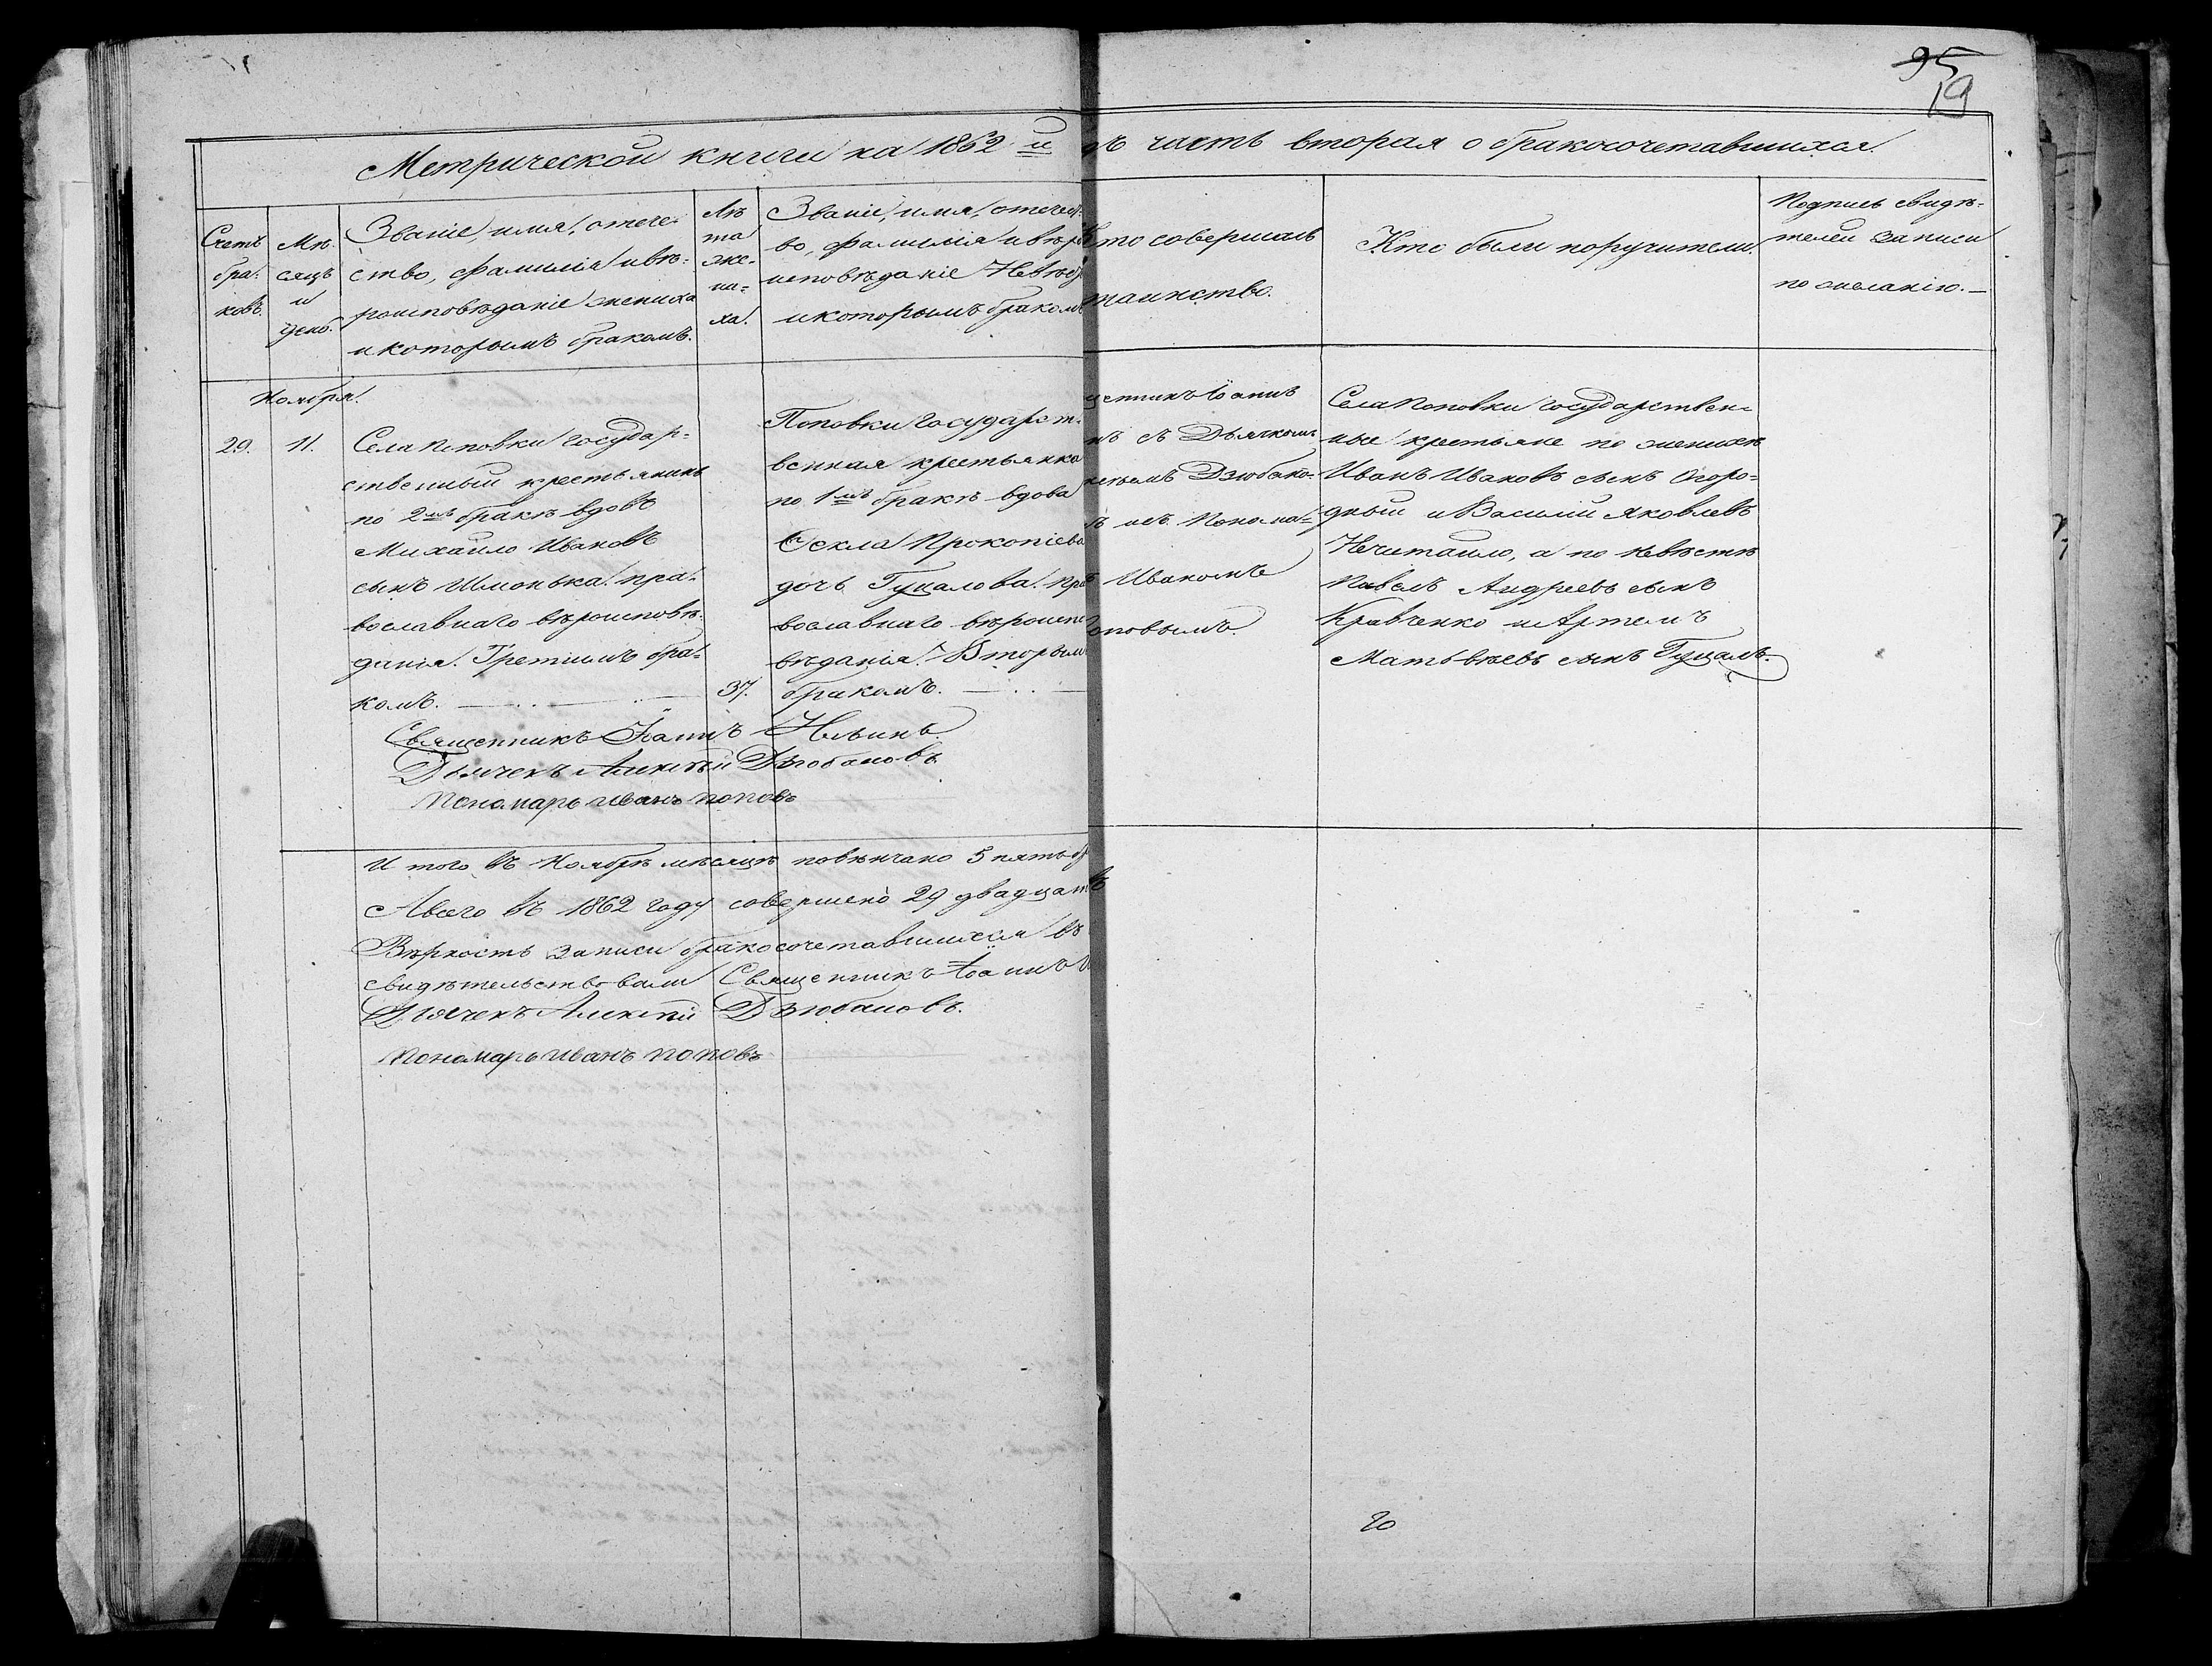 95
19
Метрической книги на 1862 й
ъ часть вторая о бракосочетавшихся.
Счетъ
бра-
ковъ.
Мѣ-
сяцъ
и
день.
Званіе, имя, отече-
ство, фамилія и вѣ-
роисповѣданіе жениха
и которымъ бракомъ.
Лѣ
та
же-
ни-
ха.
Званіе, имя, отечест-
во, фамилія и вѣро
исповѣданіе Невѣс
и которымъ бракомъ
то совершалъ
таинство.
Кто были поручители.
Подпись свидѣ-
телей записи
по желанію. —
Ноября.
29.
11.
Села Поповки государ-
ственный крестьянинъ
по 2мъ бракѣ вдовъ
Михайло Ивановъ
сынъ Шмонька. пра-
вославнаго вѣроисповѣ-
данія. Третьимъ бра-
комъ.
37.
Поповки Государст-
венная крестьянка
по 1мъ бракѣ вдова
Ѳекла Прокопіева
дочь Гуцалова. пра
вославнаго вѣроиспо
вѣданія. Вторым
бракомъ.
щенникъ Іоаннъ
нъ съ Дьячкомъ
сѣемъ Дзюбано-
Иваномъ
оповымъ.
Села Поповки государствен-
ные крестьяне по женихѣ
Иванъ Ивановъ сынъ Огоро-
дный и Василій Яковлевъ
Нечитайло, а по невѣстѣ
Павелъ Андреевъ сынъ
Кравченко и Артемъ
Матьвѣевъ сынъ Гуцалъ.
Священникъ Іоаннъ Ильинъ.
Дьячекъ Алексѣй Дзюбановъ
Пономарь Иванъ Поповъ
И того въ Ноябрѣ мѣсяцѣ повѣнчано 5 пять б
А всего въ 1862 году совершено 29 двадцать
Вѣрность записи бракосочетавшихся въ
свидѣтельствовали Священникъ Іоаннъ И
Дьячекъ Алексѣй Дзюбановъ.
Пономарь Иванъ Поповъ
20